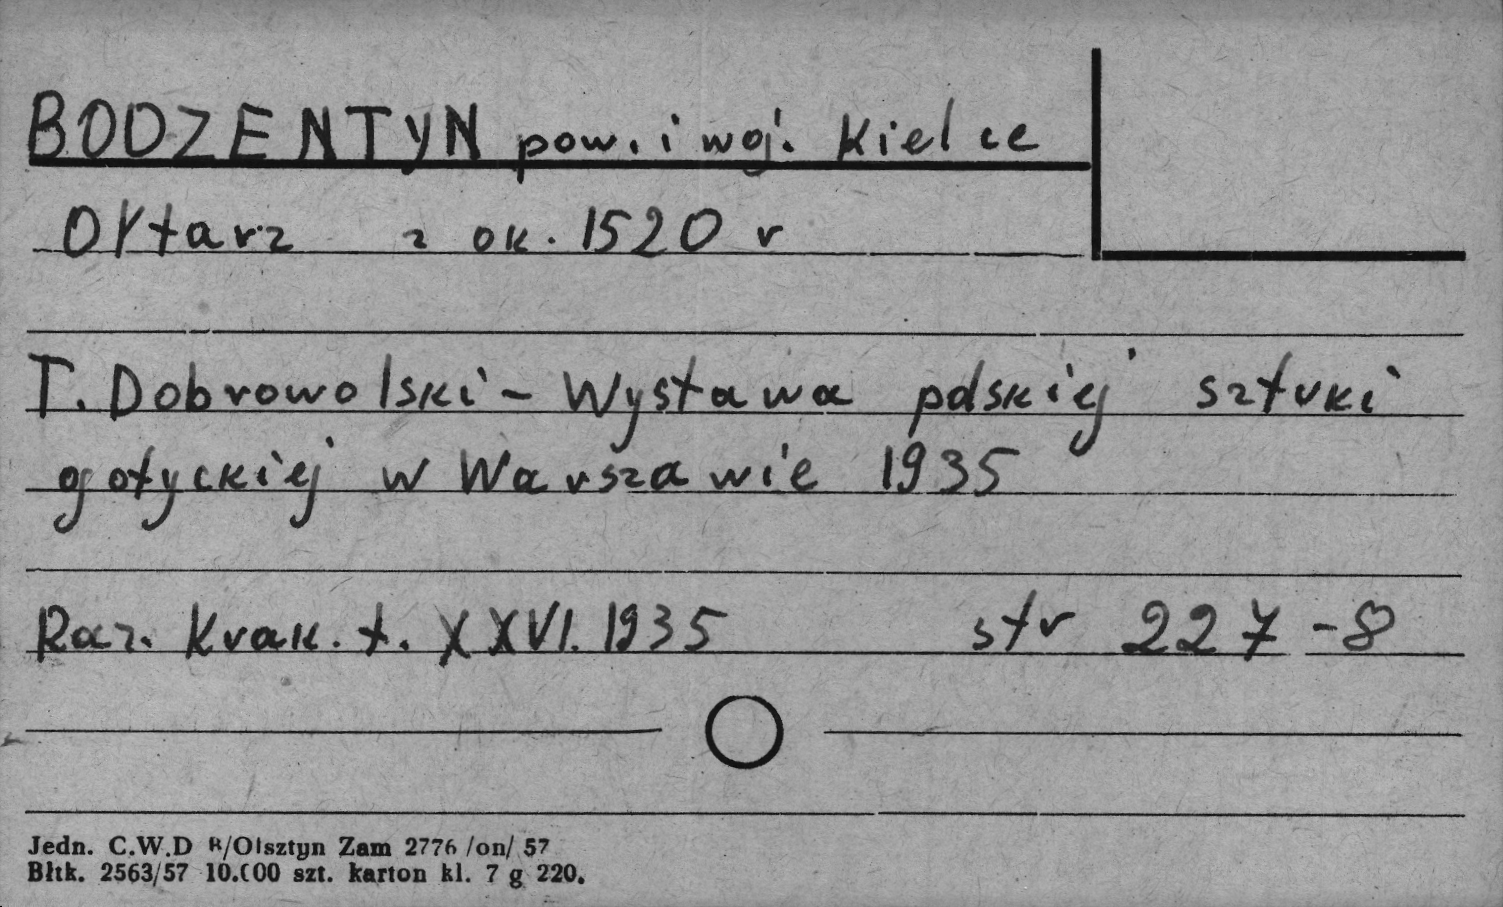 BODZENTYN pow. i woj. Kielce
Ołtarz z ok. 1520 r
T. Dobrowolski - Wystawa polskiej sztuki
gotyckiej w Warszawie 1935
Roz. Krak. t. XXVI. 1935 str 227-8
Jedn. C.W.D R/Olsztyn Zam 2776 /on/ 57
Błtk. 2563/57 10.000 szt. karton kl. 7 g 220.